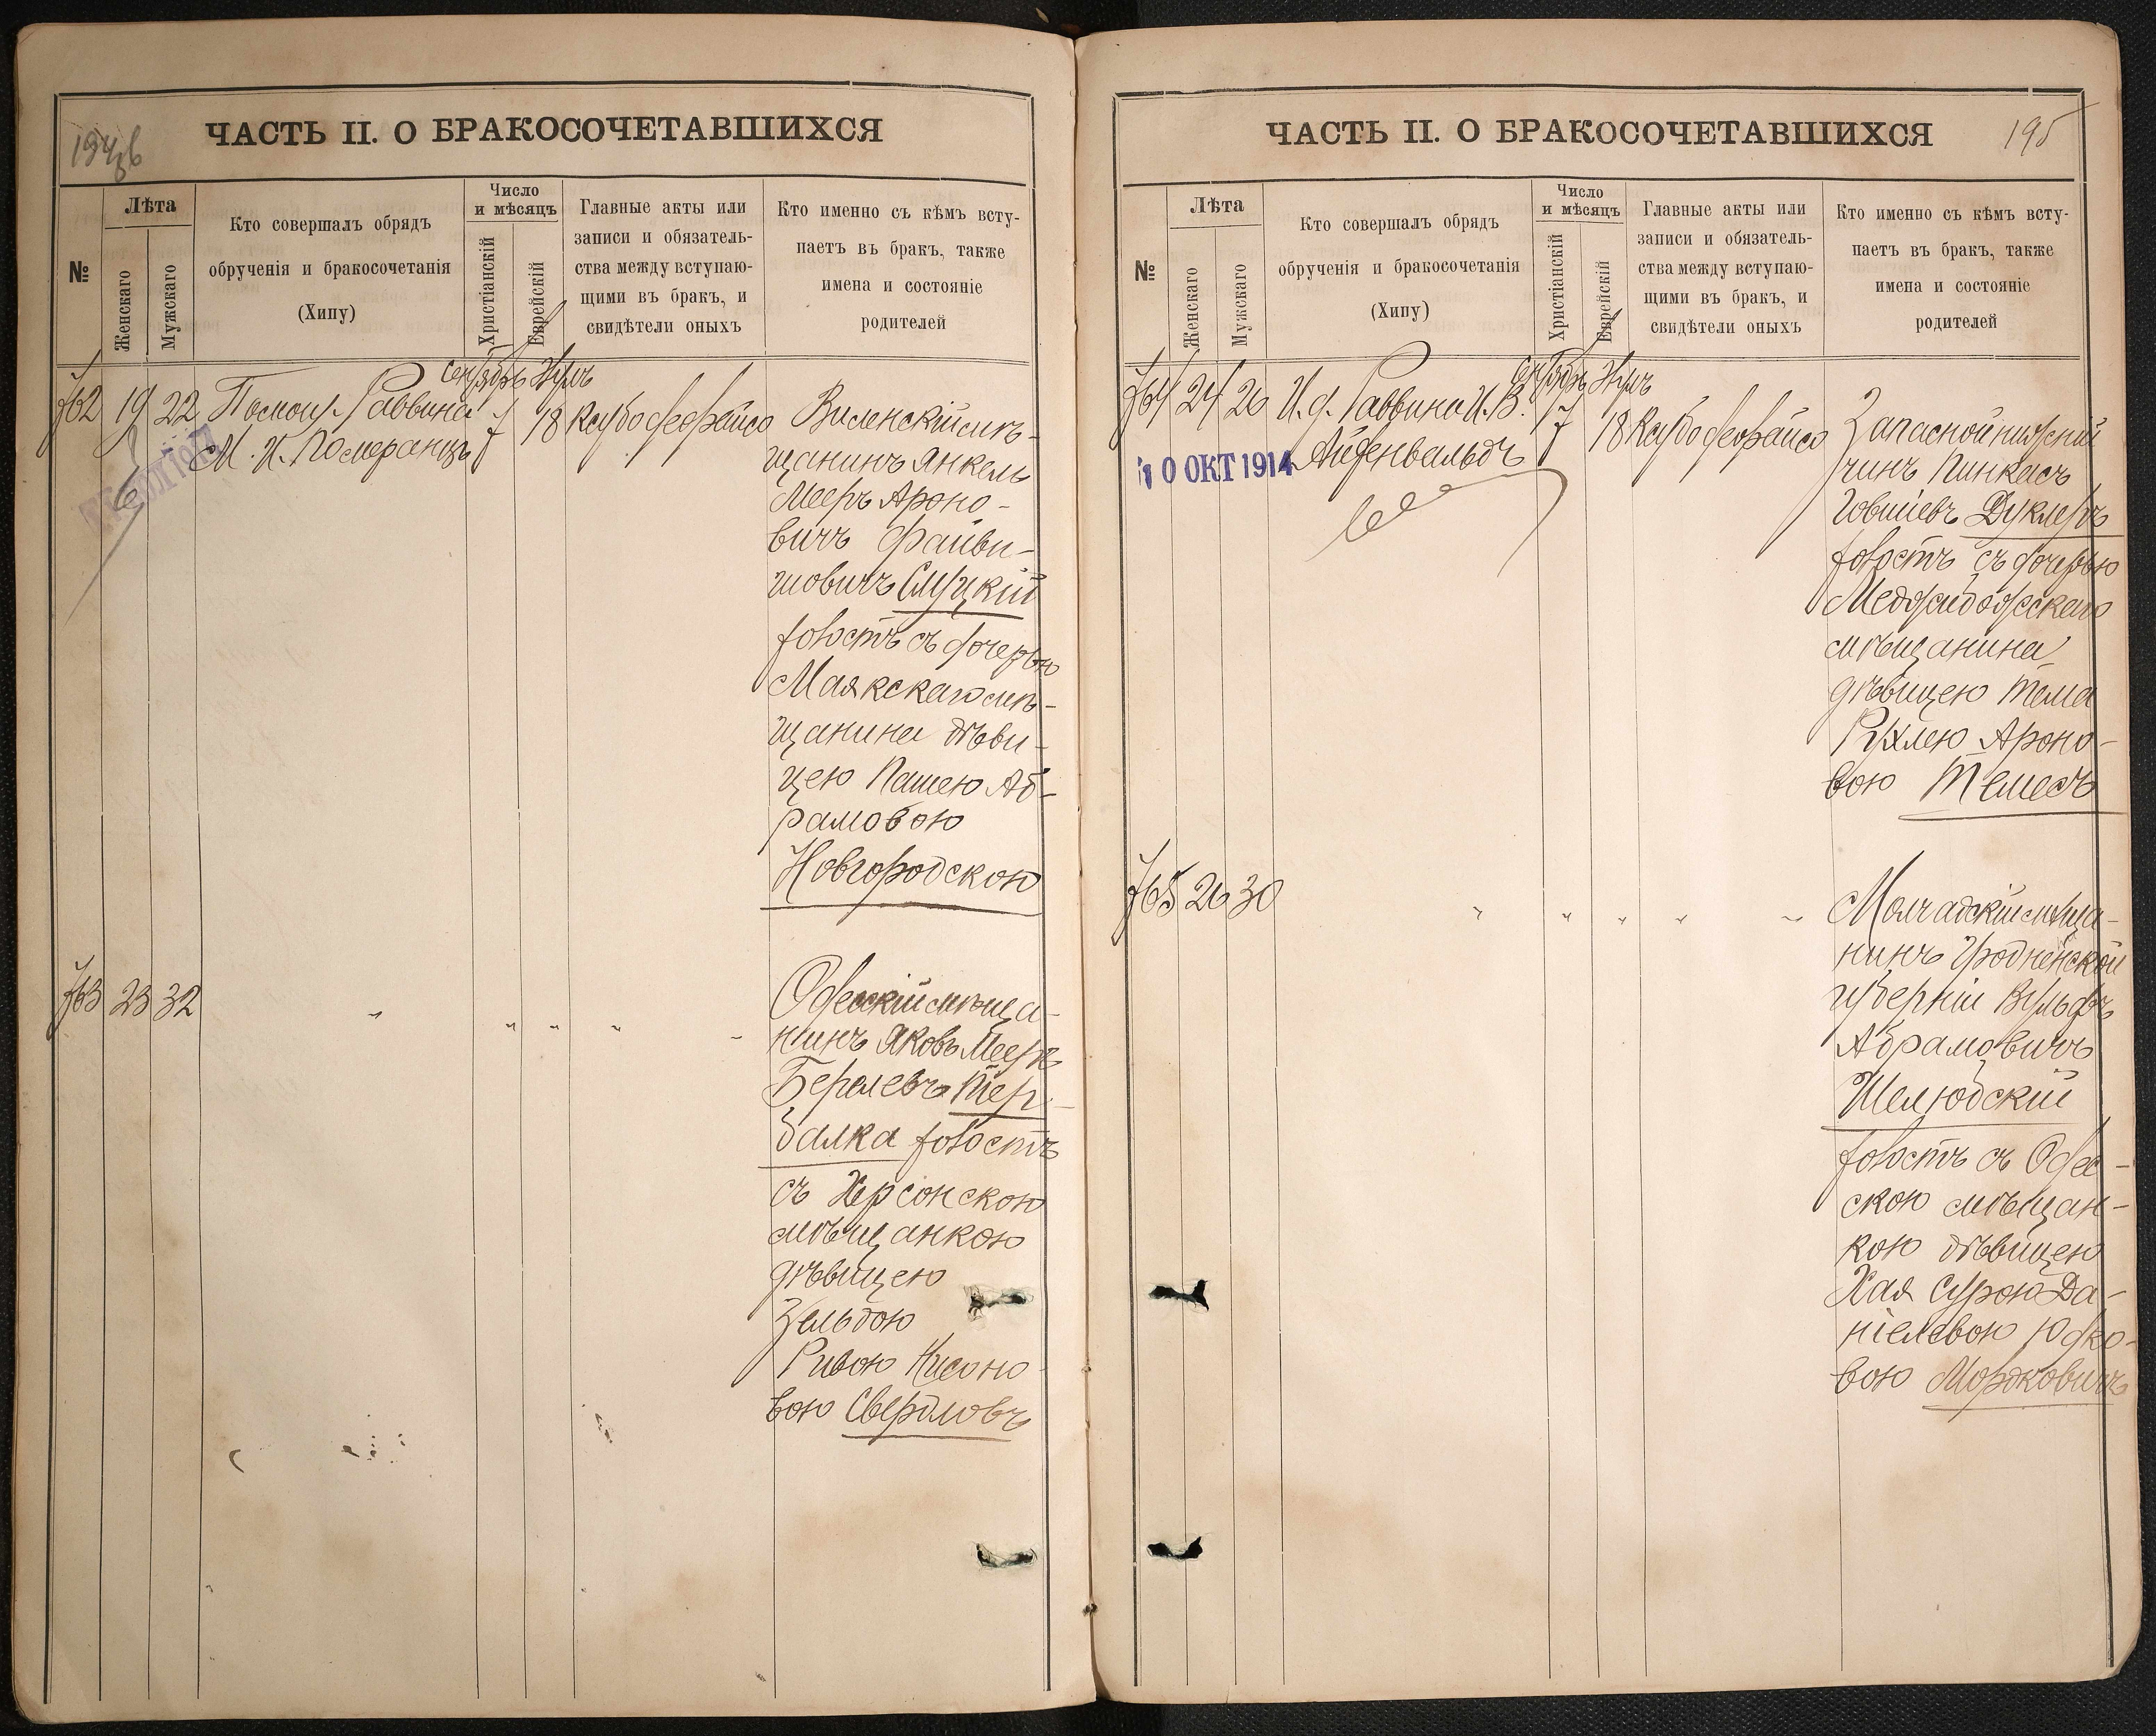 ЧАСТЬ II. О БРАКОСОЧЕТАВШИХСЯ
№
Лѣта
Женскаго
Мужскаго
Кто совершалъ обрядъ
обрученія и бракосочетанія
(Хипу)
Число
и мѣсяцъ
Христіанскій
Еврейскій
Главные акты или
записи и обязатель-
ства между вступаю-
щими въ бракъ, и
свидѣтели оныхъ
Кто именно съ кѣмъ всту-
паетъ въ бракъ, также
имена и состояніе
родителей
762 19 22
Помощ. Раввина
М. И. Померанцъ
7
18
Виленскій мѣ-
щанинъ Янкель
Мееръ Ароно-
вичъ Файви-
шовичъ Слуцкій
холостъ съ дочерью
Маякскаго мѣ-
щанина дѣви-
цею Пашею Аб-
рамовою
Новгородскою
763 23 32
" " " " "
Одесскій мѣща-
нинъ Яковъ Мееръ
Берлевъ Тер-
балка холостъ
съ Херсонскою
мѣщанкою
дѣвицею
Зельдою
Ривою Нисоно-
вою Свердловъ
ЧАСТЬ II. О БРАКОСОЧЕТАВШИХСЯ
195
№
Лѣта
Женскаго
Мужскаго
Кто совершалъ обрядъ
обрученія и бракосочетанія
(Хипу)
Число
и мѣсяцъ
Христіанскій
Еврейскій
Главные акты или
записи и обязатель-
ства между вступаю-
щими въ бракъ, и
свидѣтели оныхъ
Кто именно съ кѣмъ всту-
паетъ въ бракъ, также
имена и состояніе
родителей
764 24 26
И. д. Раввина И. В.
Айденвальдъ
10 ОКТ 1914
7
18
Запасной нижній
чинъ Пинкасъ
Іовшіевъ Дуклеръ
холостъ съ дочерью
мѣщанина
дѣвицею Тема
Рухлею Ароно-
вою Темесъ
765 26 30
" " " " "
Молчадскій мѣща-
нинъ Гродненской
губерніи Вульфъ
Абрамовичъ
Шелюбскій
холостъ съ Одес-
скою мѣщан-
кою дѣвицею
Хая Сурою Да-
ніелевою Юдко-
вою Мордковичъ